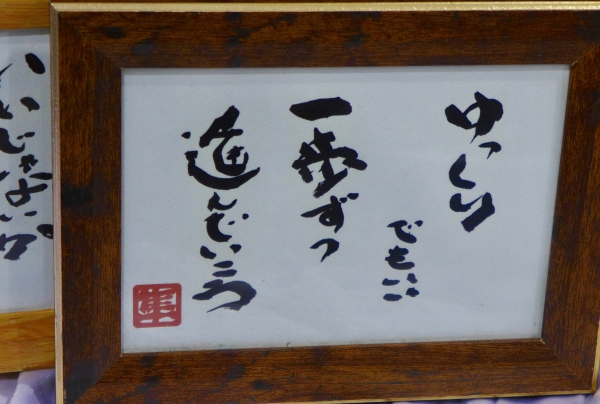 ゆっくり
でもいい
一歩ずつ
進んでいこう
いいじゃないか